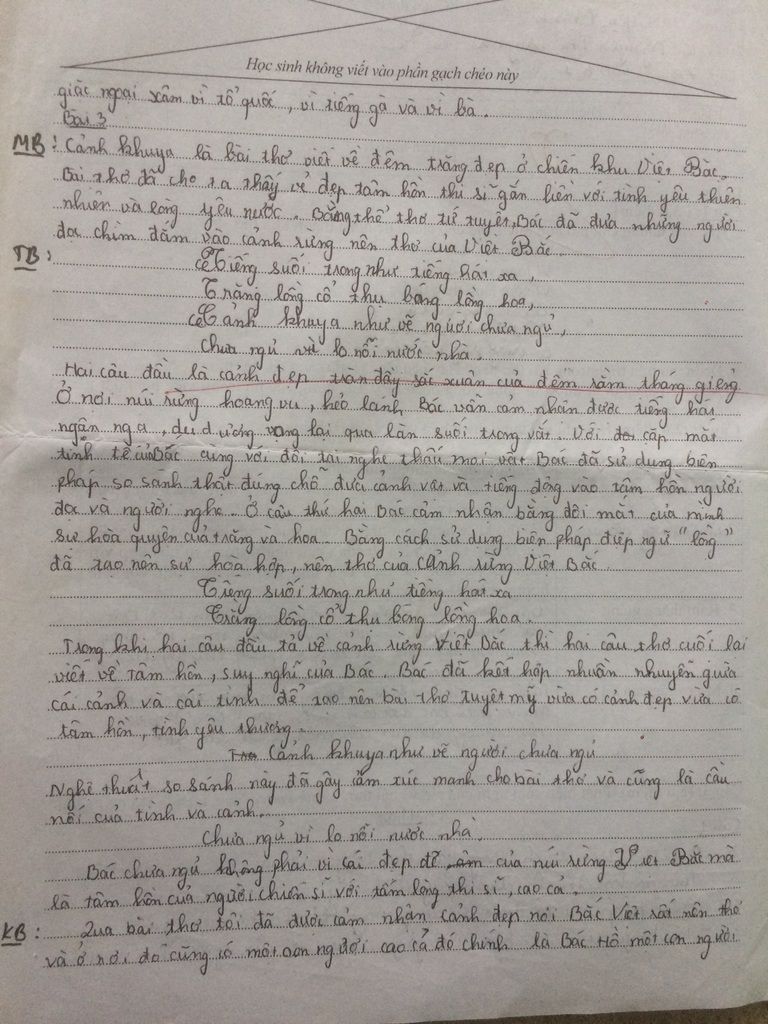 Học sinh không viết vào phần gạch chéo này
giặc ngoại xâm vì tổ quốc, vì tiếng gà và vì bà.
Bài 3
MB: Cảnh khuya là bài thơ viết về đêm trăng đẹp ở chiến khu Việt Bắc.
Bài thơ đã cho ta thấy vẻ đẹp tâm hồn thi sĩ gắn liền với tình yêu thiên
nhiên và lòng yêu nước. Bằng thể thơ tứ tuyệt, Bác đã đưa những người
đọc chìm đắm vào cảnh rừng nên thơ của Việt Bắc.
TB:
Tiếng suối trong như tiếng hát xa,
Trăng lồng cổ thụ bóng lồng hoa,
Cảnh khuya như vẽ người chưa ngủ,
Chưa ngủ vì lo nỗi nước nhà.
Hai câu đầu là cảnh đẹp tràn đầy sắc xuân của đêm rằm tháng giêng
Ở nơi núi rừng hoang vu, hẻo lánh Bác vẫn cảm nhận được tiếng hát
ngân nga, du dương vang lại qua làn suối trong vắt. Với cặp mắt
tinh tế của Bác cùng với đôi tai nghe thấu mọi vật Bác đã sử dụng biện
pháp so sánh thật đúng chỗ đưa cảnh vật và tiếng động vào tâm hồn người
đọc và người nghe. Ở câu thứ hai Bác cảm nhận bằng đôi mắt của mình
sự hòa quyện của trăng và hoa. Bằng cách sử dụng biện pháp điệp ngữ "lồng"
đã tạo nên sự hoà hợp, nên thơ của cảnh rừng Việt Bắc.
Tiếng suối trong như tiếng hát xa
Trăng lồng cổ thụ bóng lồng hoa.
Trong khi hai câu đầu tả về cảnh rừng Việt Bắc thì hai câu thơ cuối lại
viết về tâm hồn, suy nghĩ của Bác. Bác đã kết hợp nhuần nhuyễn giữa
cái cảnh và cái tình để tạo nên bài thơ tuyệt mỹ vừa có cảnh đẹp vừa có
tâm hồn, tình yêu thương.
Cảnh khuya như vẽ người chưa ngủ
Nghệ thuật so sánh này đã gây cảm xúc mạnh cho bài thơ và cũng là cầu
nối của tình và cảnh.
Chưa ngủ vì lo nỗi nước nhà.
Bác chưa ngủ không phải vì cái đẹp của núi rừng Việt Bắc mà
là tâm hồn của người chiến sĩ với tấm lòng thi sĩ, cao cả.
KB: Qua bài thơ tôi đã được cảm nhận cảnh đẹp nơi Bắc Việt rất nên thơ
và ở nơi đó cũng có một con người cao cả đó chính là Bác Hồ một con người